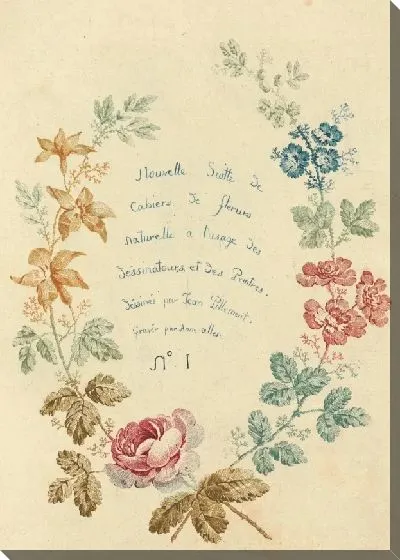 Nouvelle Suitte de
Cahiers de fleurs
naturelle a l'usage des
dessinateurs et des Peintres.
Dessinés par Jean Pillement.
Gravés par Anne allen
N° 1